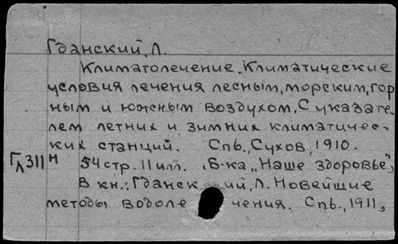 Гданский, Л.
Климатолечение. Климатические
условия лечения лесным, морским, гор
ным и южным воздухом. С указате-
лем летних и зимних климатичес-
ких станций. Спб., Сухов, 1910.
Гл311н 54 стр. 11 илл. Б-ка „Наше здоровье",
В кн.: Гданский, Л. Новейшие
методы водолечения. Спб., 1911,